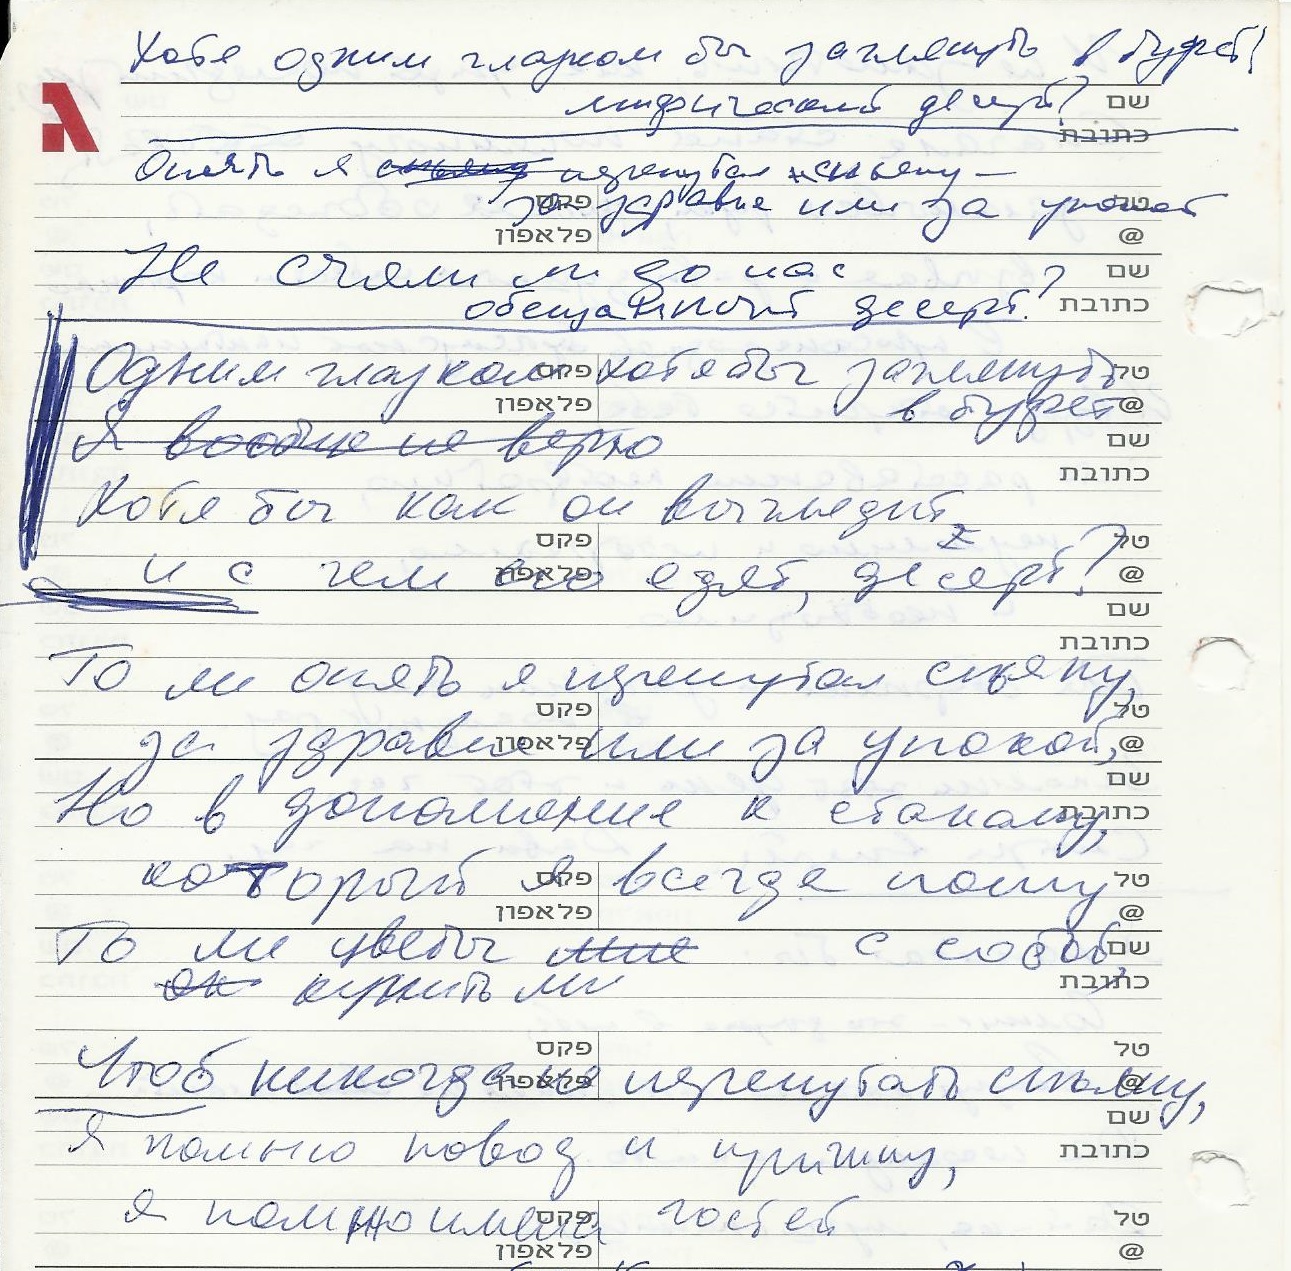 Хотя одним глазком бы заглянуть в буфет!
мифический десерт?
שם
כתובת
Опять я спьяну перепутал спьяну –
за здравие или за упокой
טל פקס
@ פלאפון
Не съели ли до нас
שם
обещанный десерт?
כתובת
Одним глазком хотя бы заглянуть
טל פקס
в буфет
@ פלאפון
Я вообще не верю
שם
כתובת
Хотя бы как он выглядит
טל פקס
и с чем его едят, десерт?
@ פלאפון
שם
כתובת
То ли опять я перепутал спьяну,
טל פקס
за здравие или за упокой,
@ פלאפון
שם
Но в дополнение к стакану,
כתובת
который я всегда ношу
טל פקס
@ פלאפון
То ли цветы мне с собой,
שם
ок купить ли
כתובת
טל פקס
Чтоб никогда не перепутать спьяну,
@ פלאפון
שם
Я помню повод и причину,
כתובת
я помню имена гостей
טל פקס
@ פלאפון